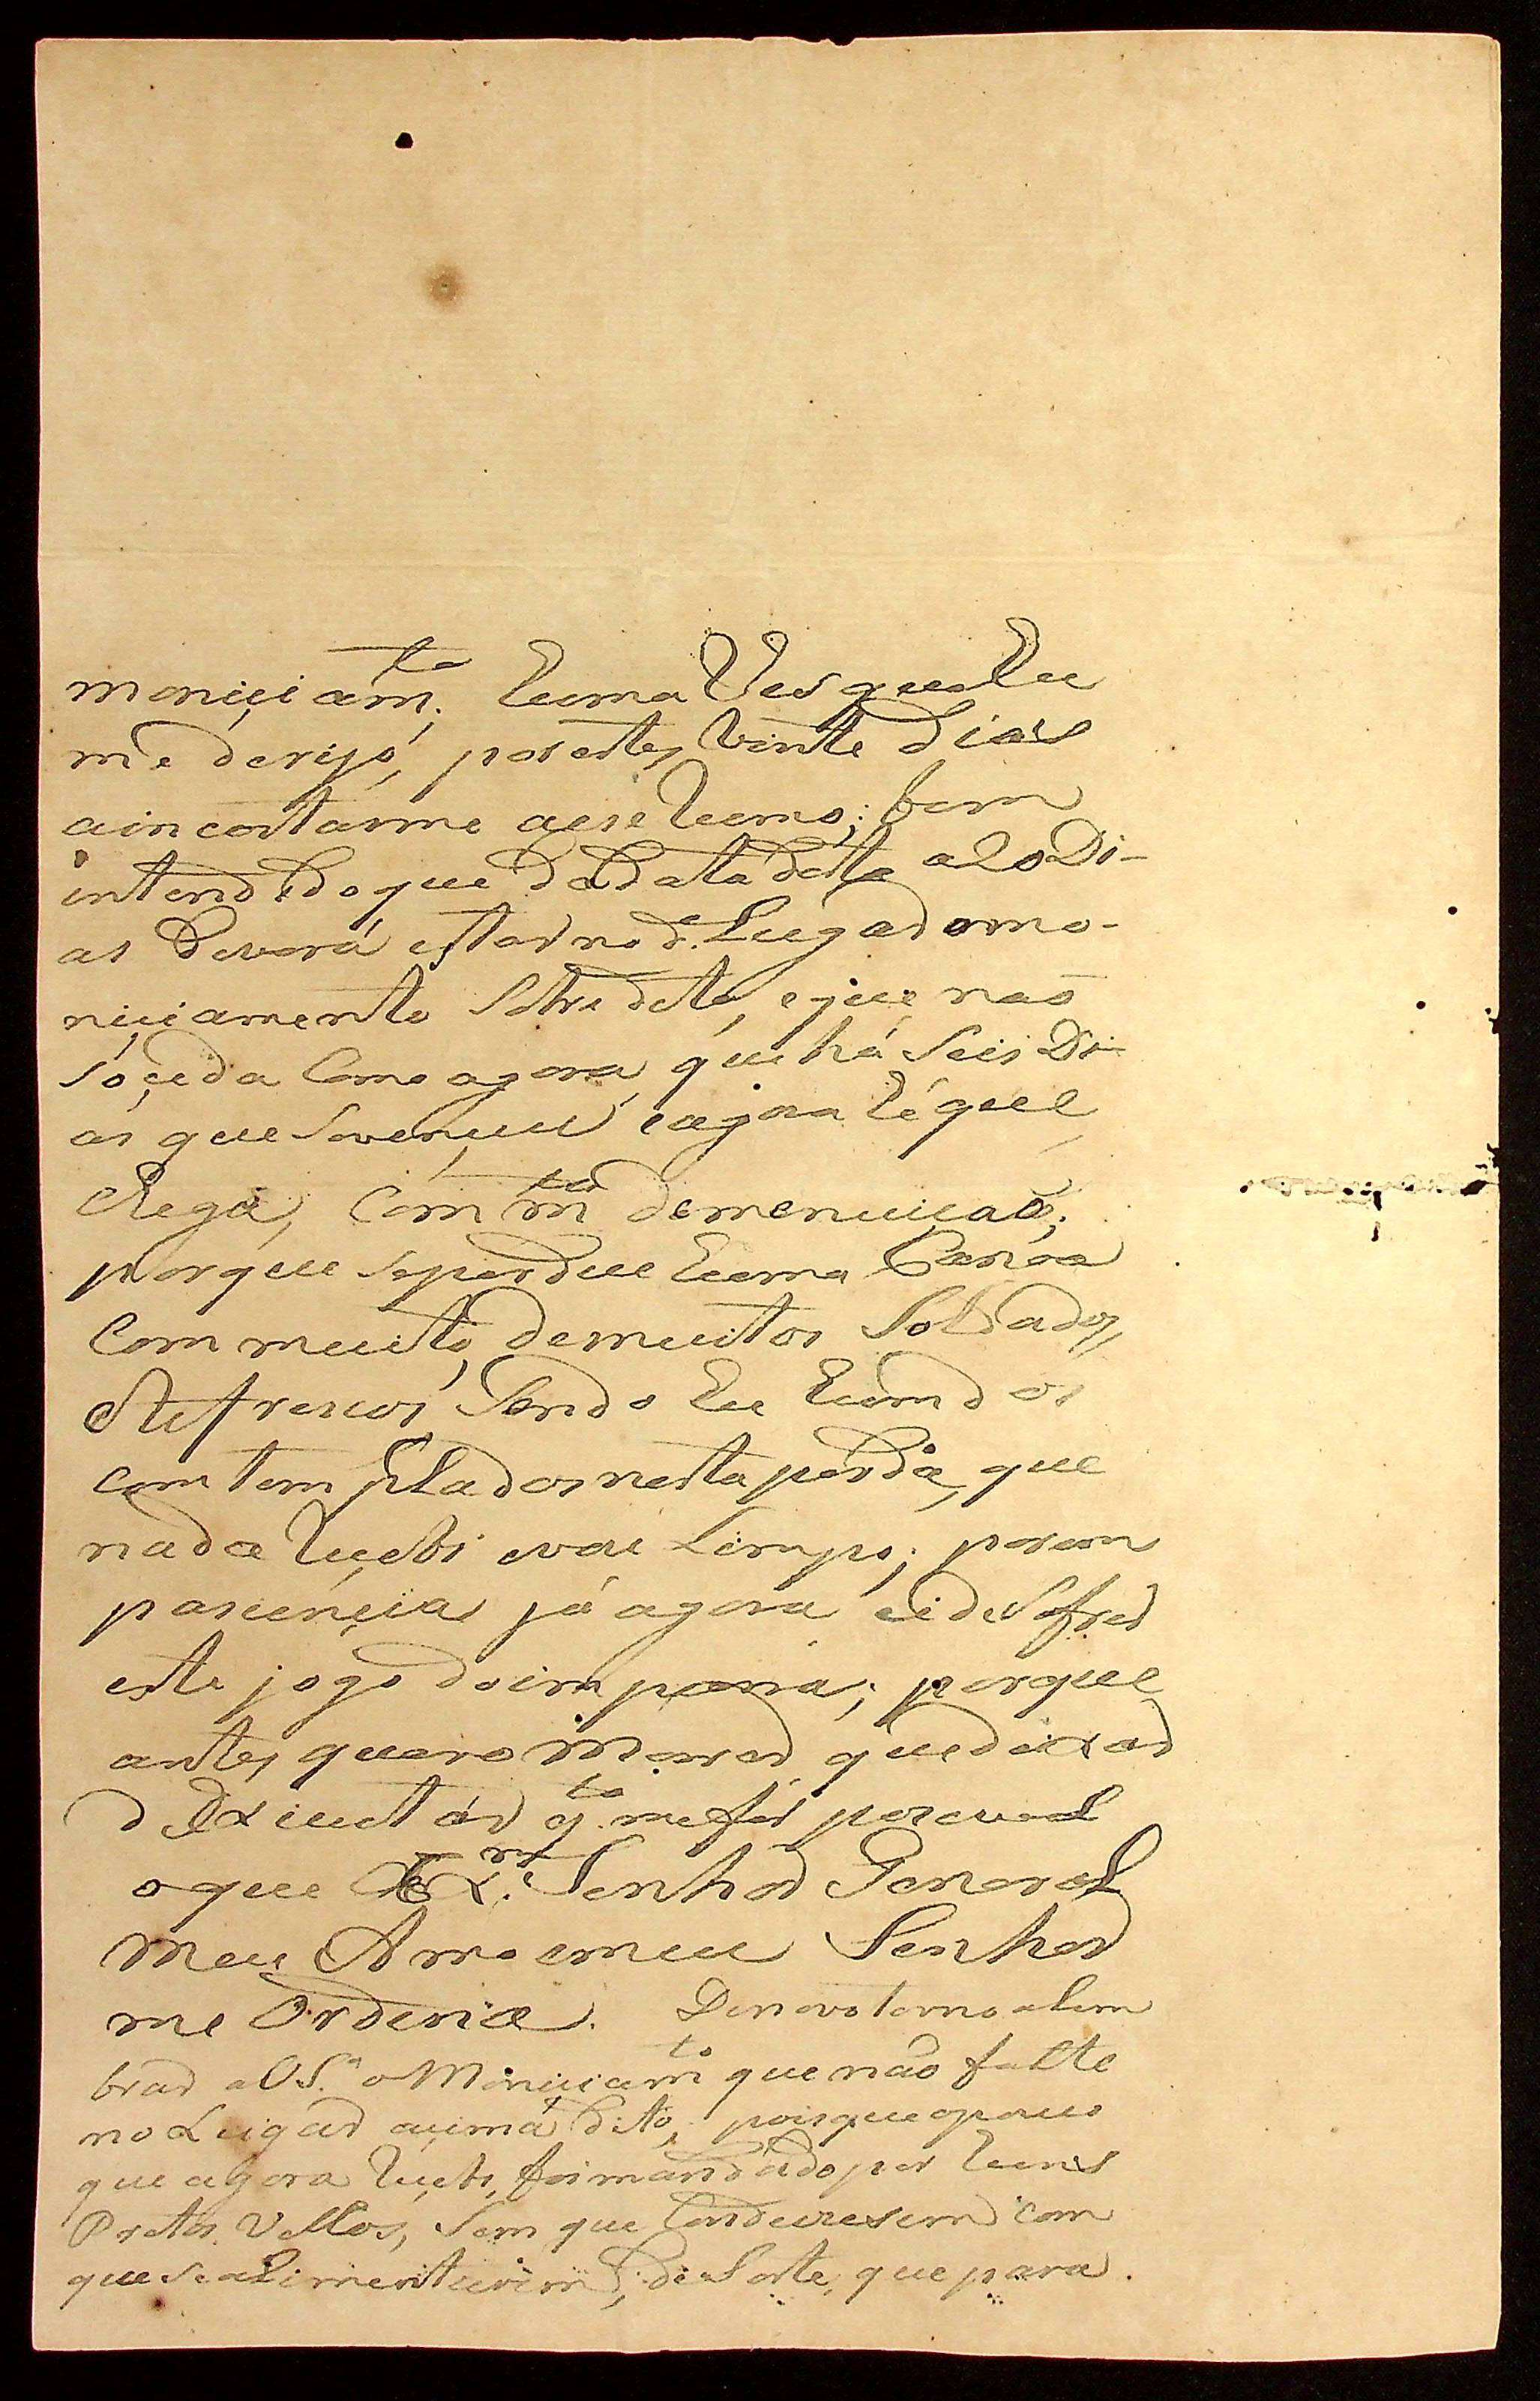 moniçiam.to huma Ves que Eu
me derijo, por estes Vinte dias
a incortarme a ese humo; bem
intendido que da data desta a 20 Di-
as Deverá estar no d.o Lugar o mo-
niçiamento Sobre dito, e que naõ
soçeda Como agora, que há Seis Di-
as que 
chega, Com m.ta demenuiçaõ,
porque se perdeu huma Canôa
Com muito, de muitos Soldados,
Refrescos, Sendo Eu hum dos
comtemplados nesta perda, que
nada reçebi e vai Limpo; porem
pasiençia já agora ei de Sofrer
este jogo do porque
antes quero Morer que deixar
d Exicutár q.to me for posivel
o que Ex.mo Senhor General
meu Amo e meu Senhor
me Ordena. De novo torno a lem
brar a V S.a o Moniçiam.to que não falte
no Lugar açima dito, pois que o pouco
que agora reçebi, foi mandado por huns
Pretos Velhos, Sem que Condeuzesem com
que se alimentarem, de Sorte, que para